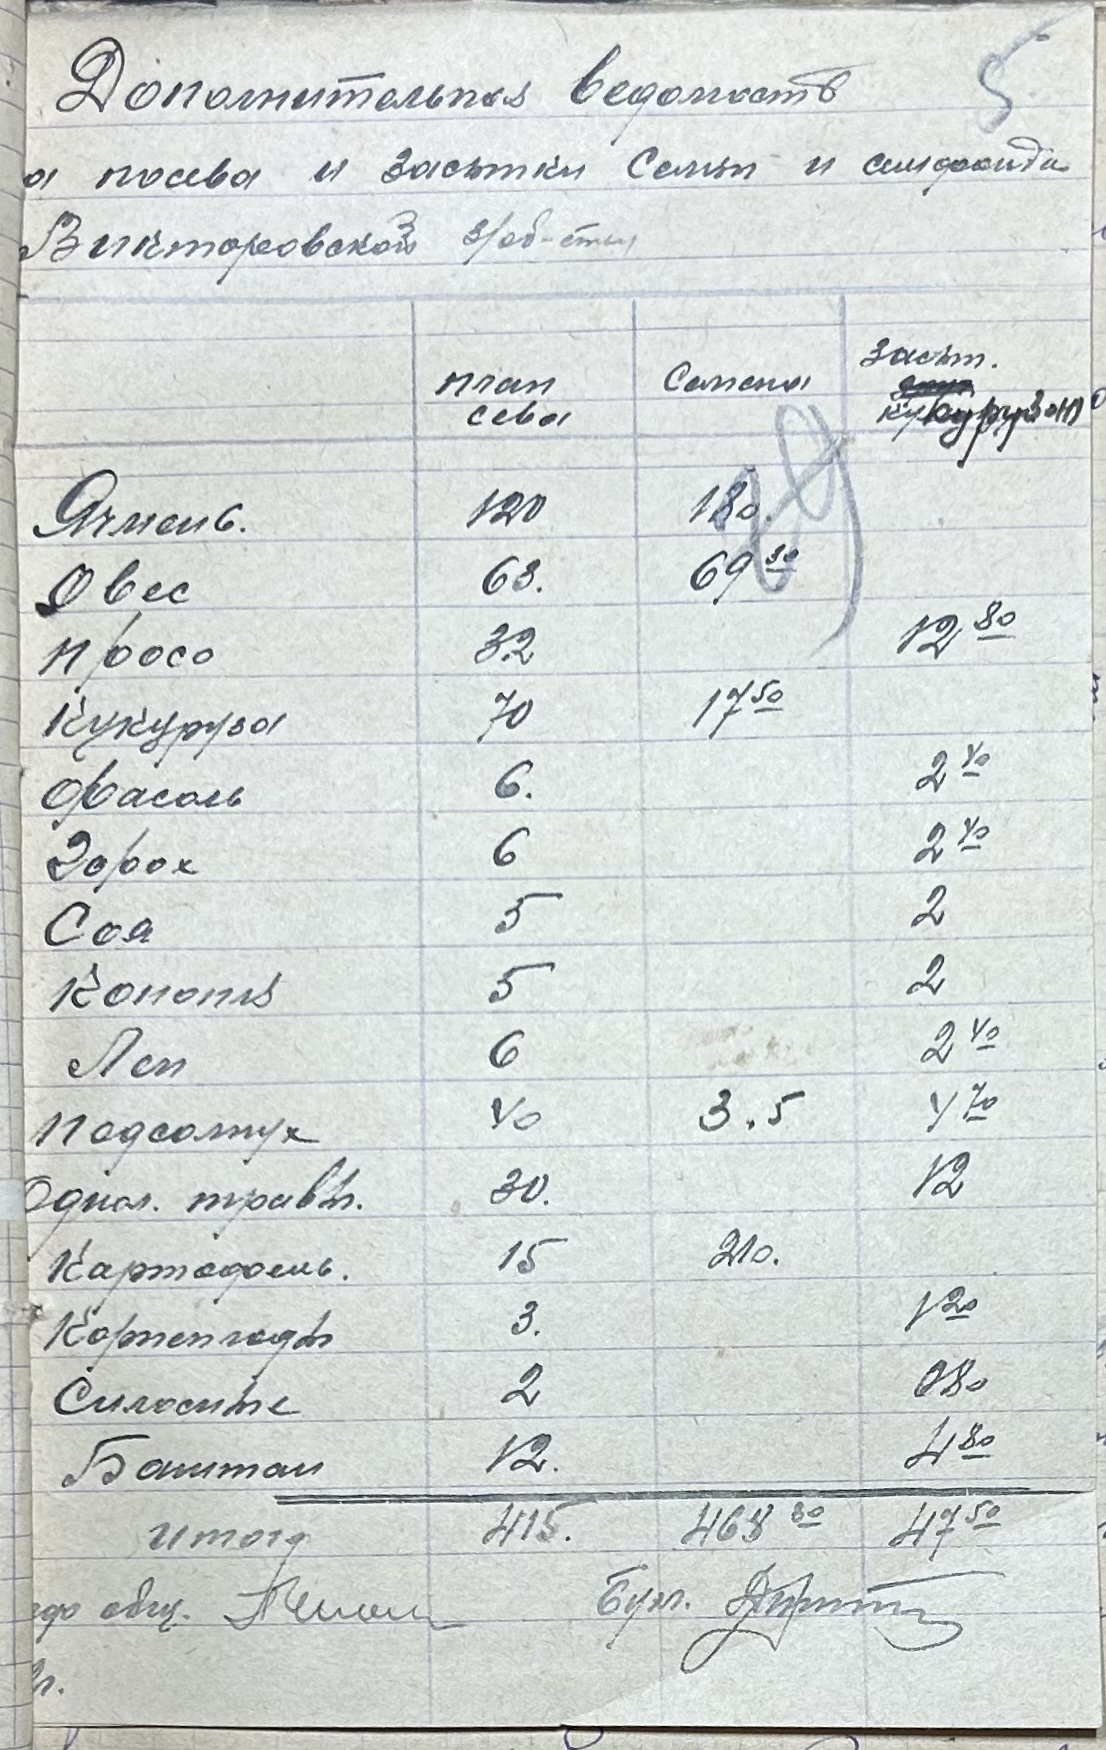 Дополнительная ведомость 5
а посева и засыпки Семян и семфонда
Викторовской з/об-ины
план сева Семена засып. кукурузой
Ячмень. 120 180.
Овес 63. 69 30
просо 32 12 80
Кукуруза 70 17 50
Фасоль 6. 2 40
Горох 6 2 40
Соя 5 2
Конопля 5 2
Лен 6 2 40
Подсолнух 40 3.5 4 70
Однол. травы. 30. 12
Картофель. 15 210.
Корнеплоды 3. 1 20
Силосные 2 0 80
Баштан 12. 4 80
итого 415. 468 80 47 50
общ. Бухг.